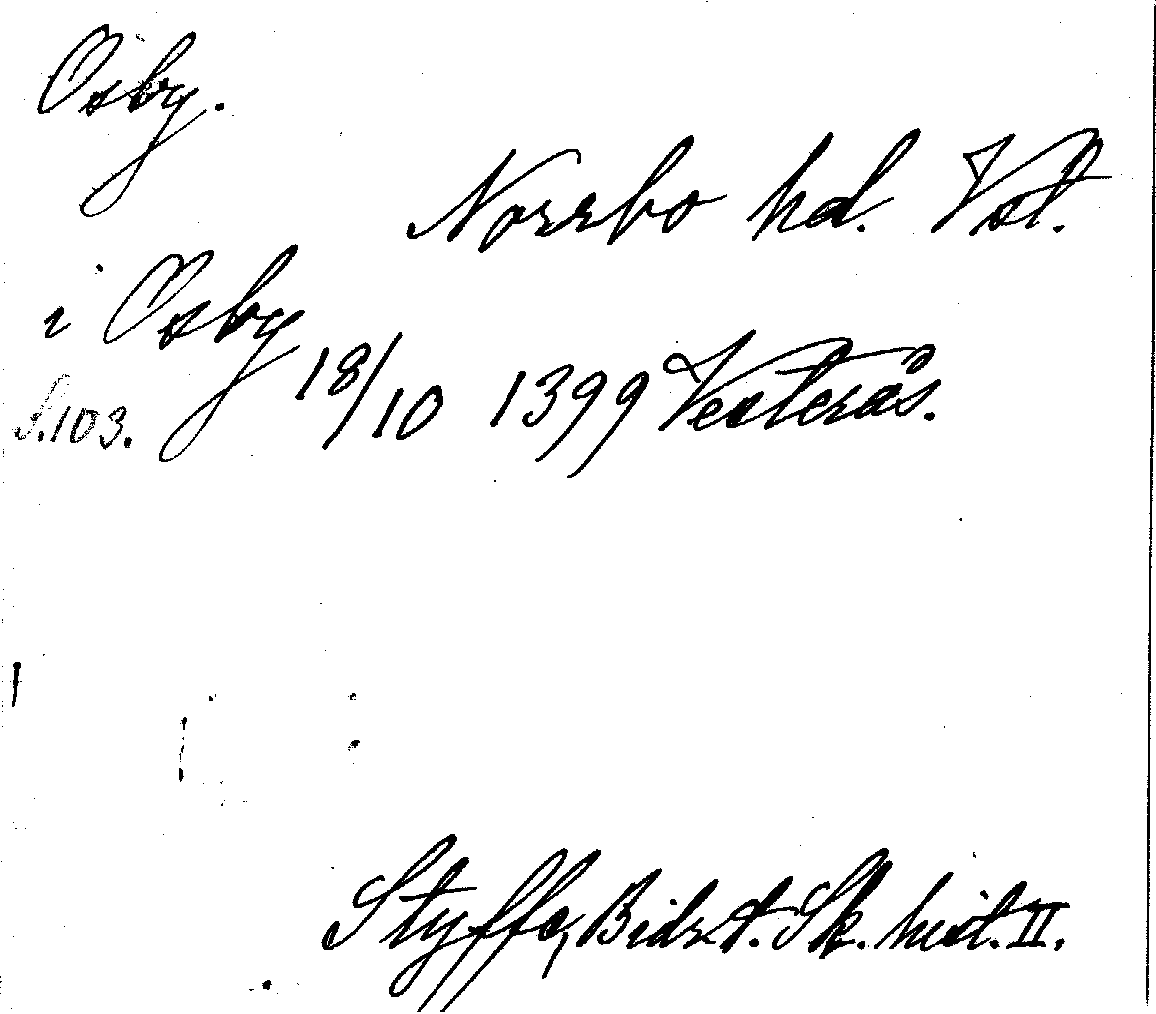 Osby.
Norrbo hd. Vstl.
i Osby 18/10 1399 Vesterås.
S.103.
Styffe, Bidr. t. Sk. hist. II.